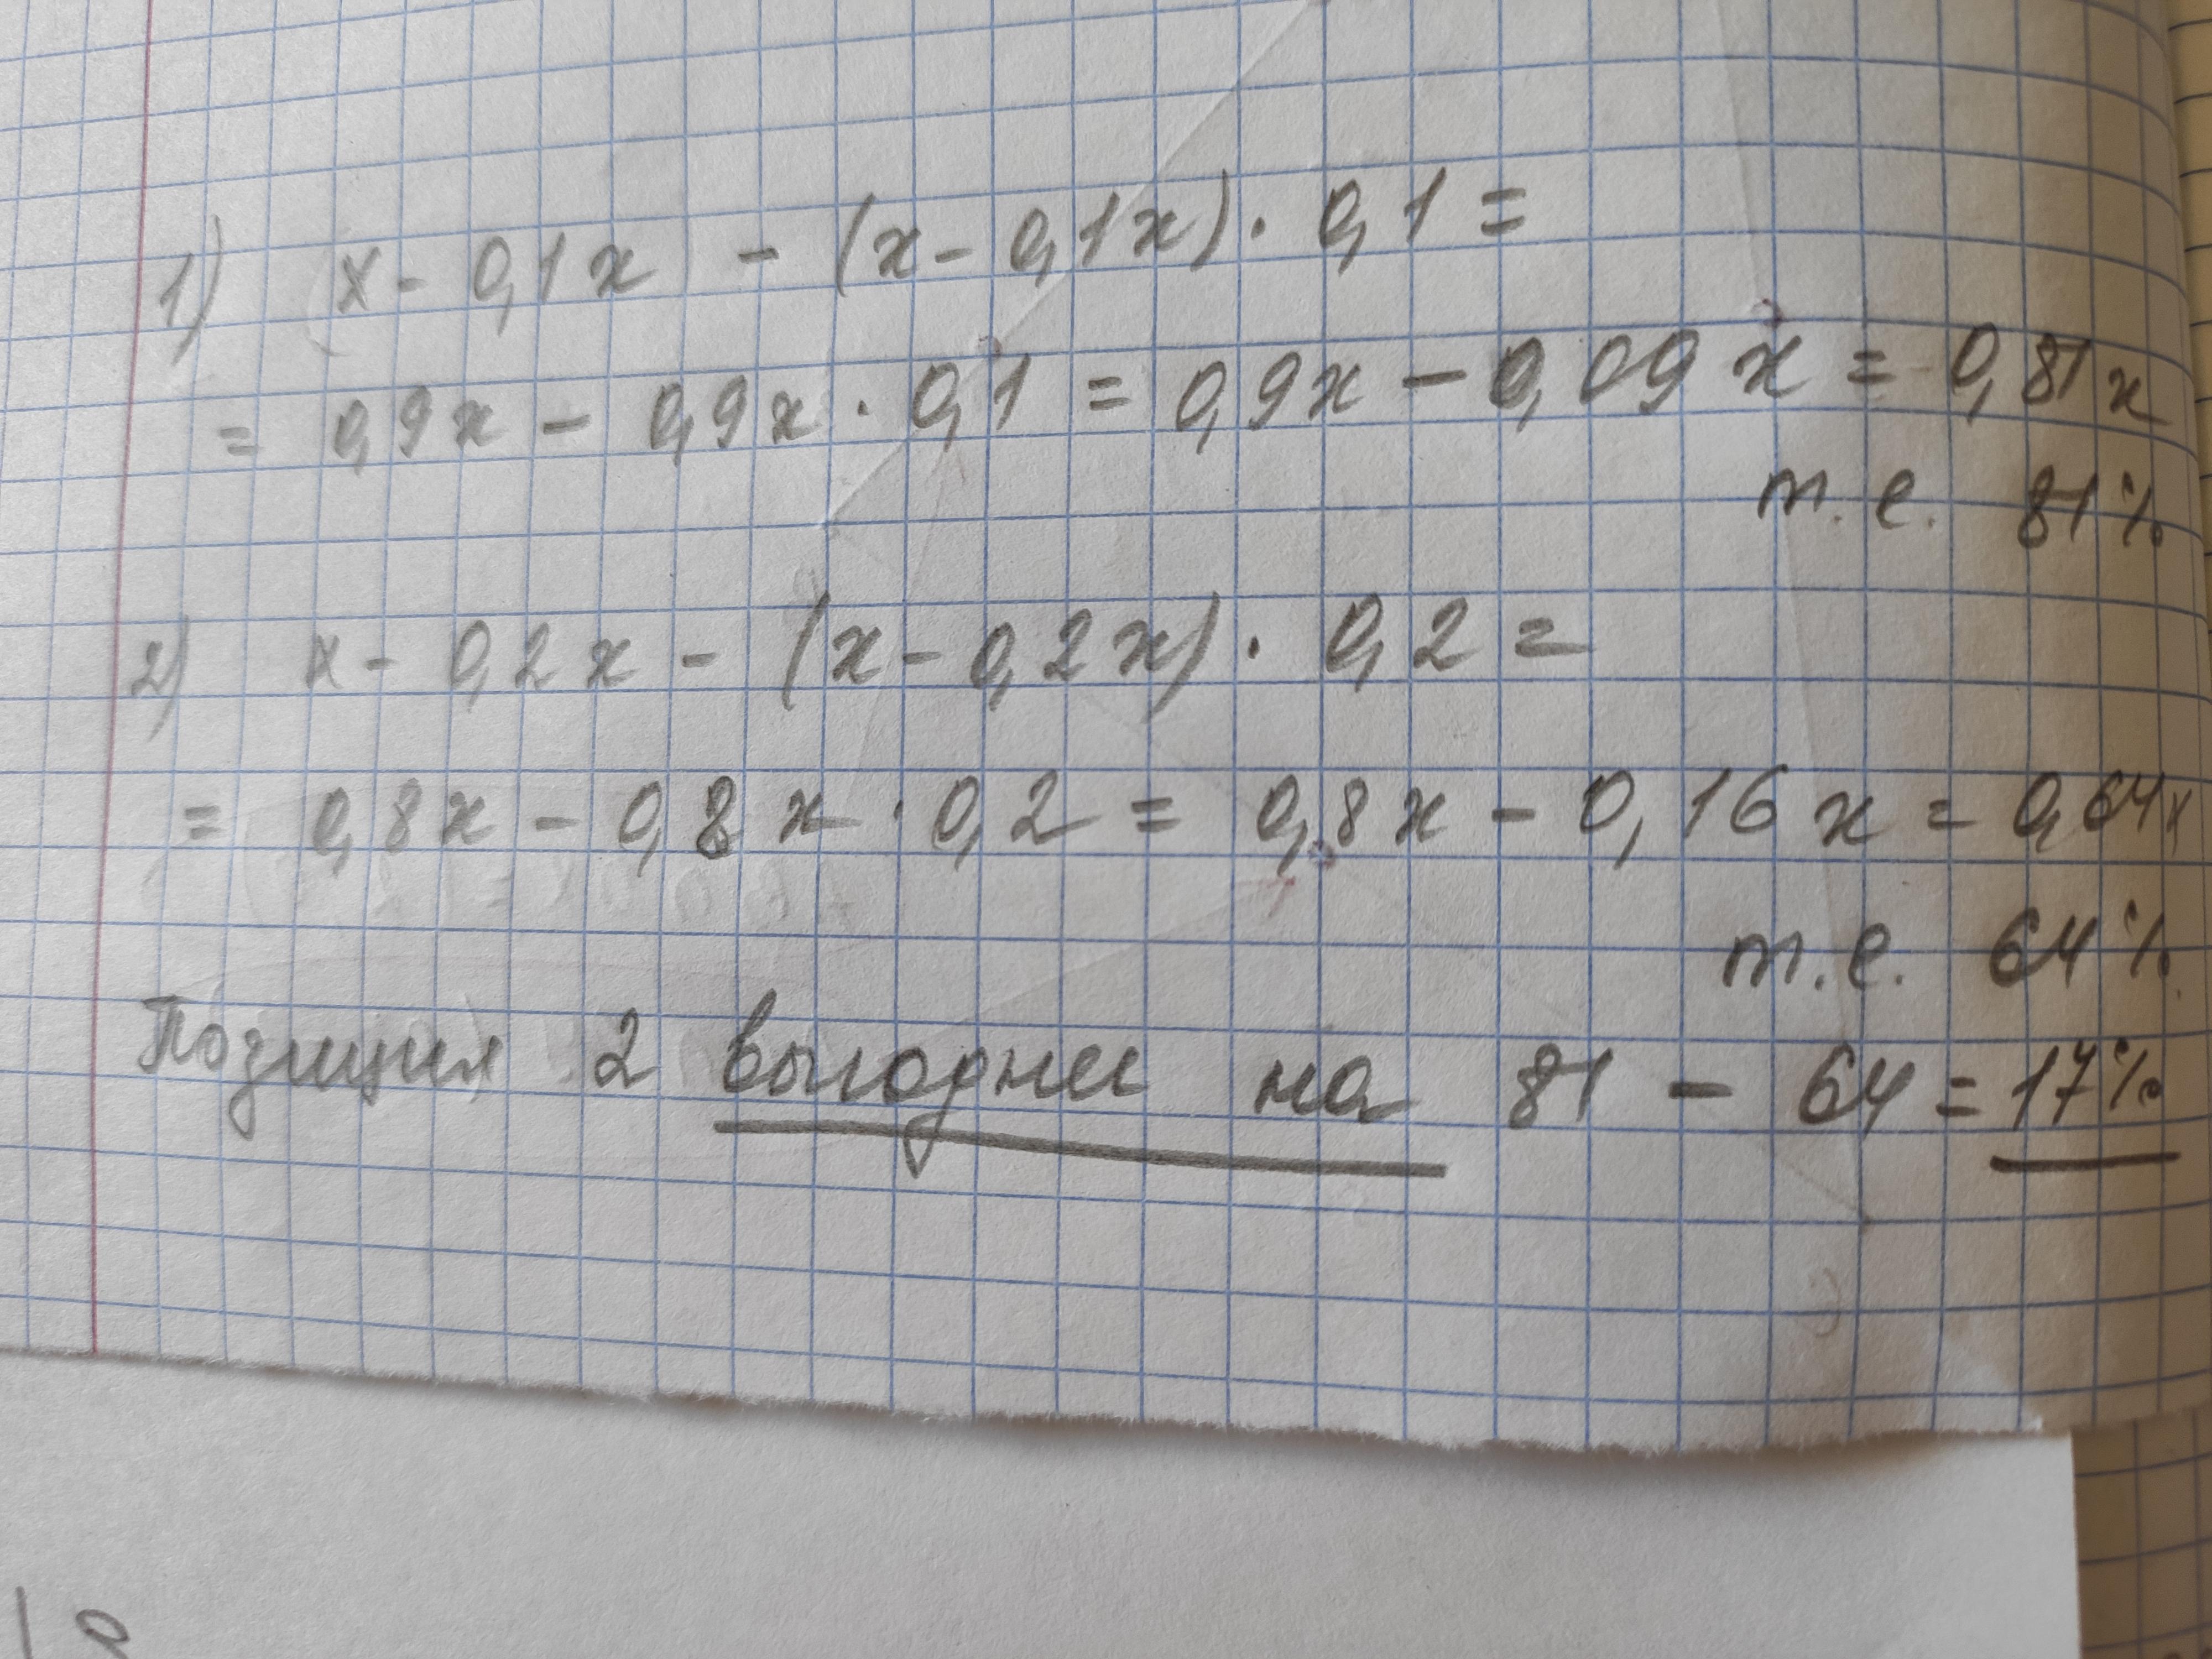 1) x - 0,1x - (x - 0,1x) · 0,1 =
= 0,9x - 0,9x · 0,1 = 0,9x - 0,09x = 0,81x
т.е. 81%
2) x - 0,2x - (x - 0,2x) · 0,2 =
= 0,8x - 0,8x · 0,2 = 0,8x - 0,16x = 0,64x
т.е. 64%
Позиция 2 выгоднее на 81 - 64 = 17%